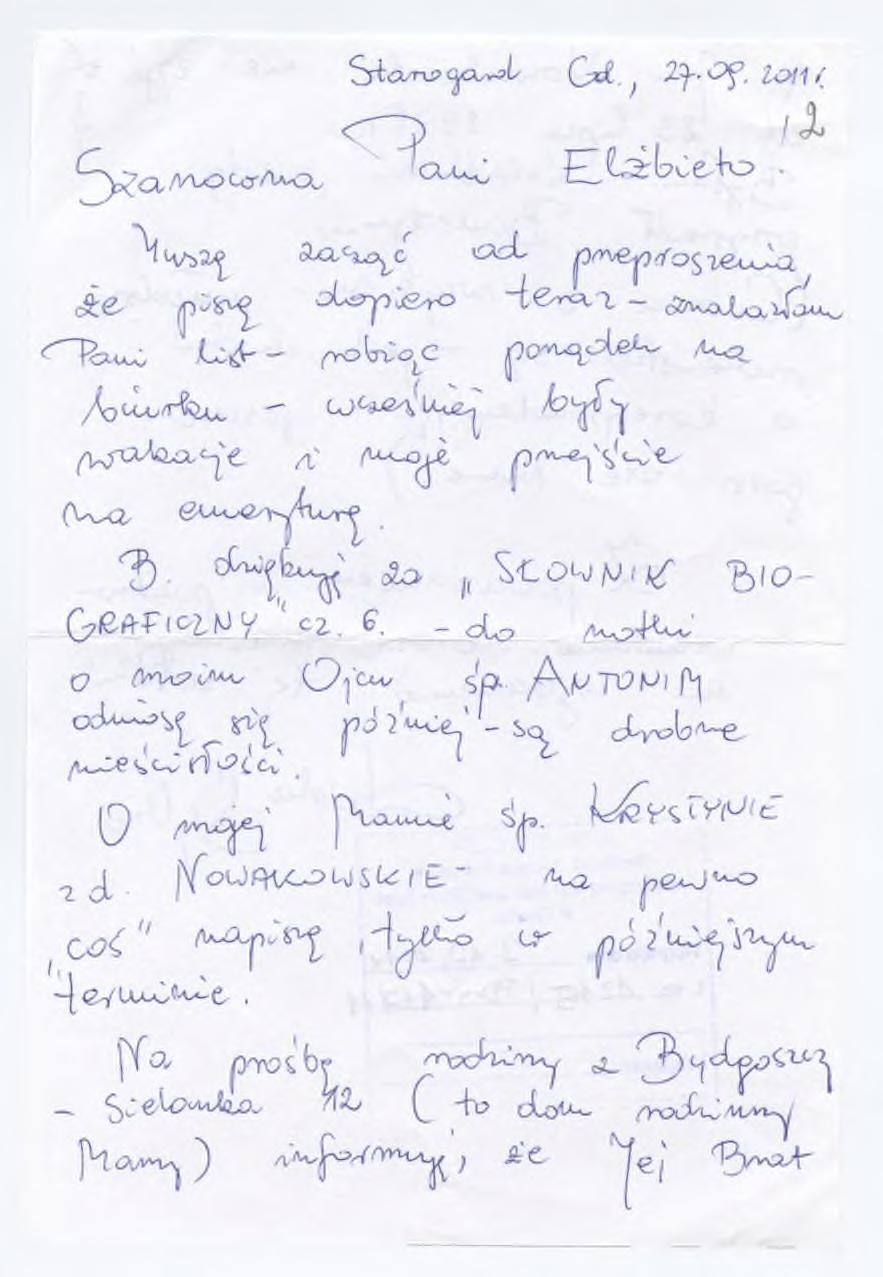 Starogard Gd., 27.09.2011r.
12
Szanowna Pani Elżbieto.
Muszę zacząć od przeproszenia,
że piszę dopiero teraz - znalazłam
Pani list - robiąc porządek na
biurku - wcześniej były
wakacje i moje przejście
na emeryturę.
B. dziękuję za „SŁOWNIK BIO-
GRAFICZNY" cz. 6. - do notki
o moim Ojcu śp. ANTONIM
odniosę się później - są drobne
nieścisłości.
O mojej Mamie śp. KRYSTYNIE
z d. NOWAKOWSKIEJ - na pewno
„coś" napiszę, tylko w późniejszym
terminie.
Na prośbę rodziny z Bydgoszczy
- Sielanka 12 (to dom rodzinny
Mamy) informuję, że Jej Brat